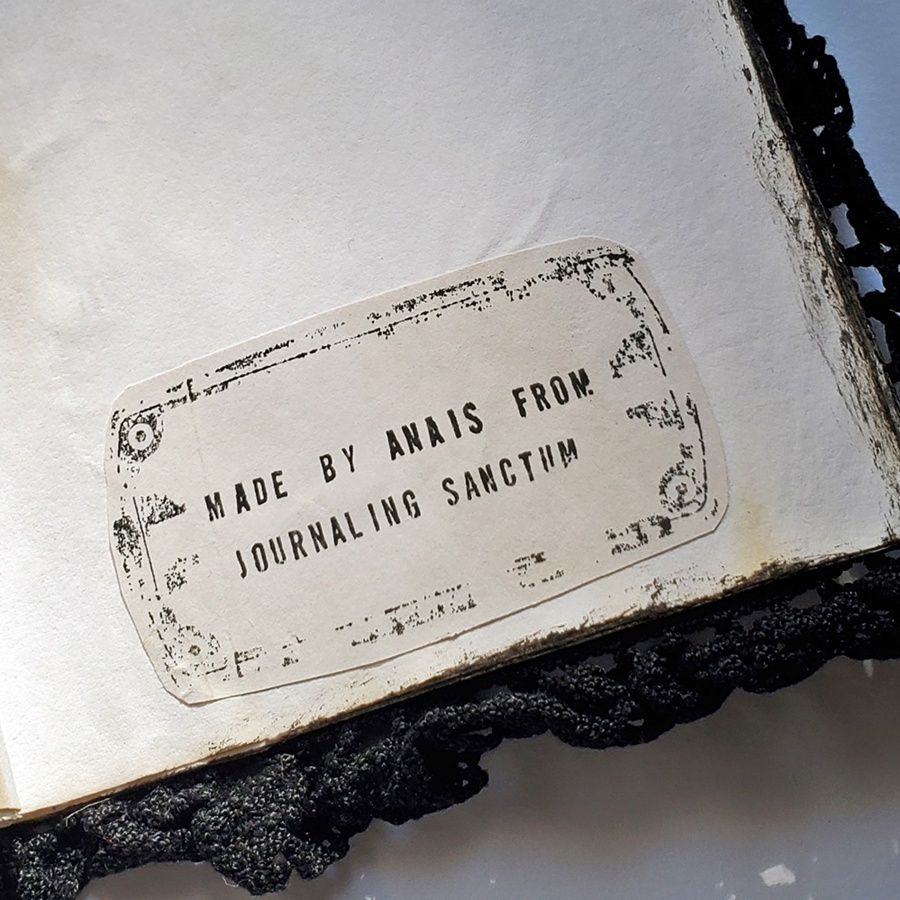 MADE BY ANAIS FROM
JOURNALING SANCTUM